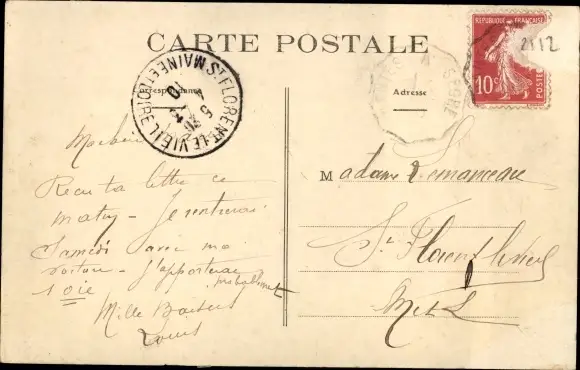 CARTE POSTALE
Correspondance
Adresse
REPUBLIQUE FRANÇAISE
10c
POSTES
2112
ST FLORENT-LE-VIEIL
MAINE ET LOIRE
SEGRE
Recu ta lettre ce
matin - Je rentrerai
Samedi avec ma
voiture - J'apporterai
1 oie probablement
Mille Baisers
Louis
Madame
St Florent le Vieil
M & L